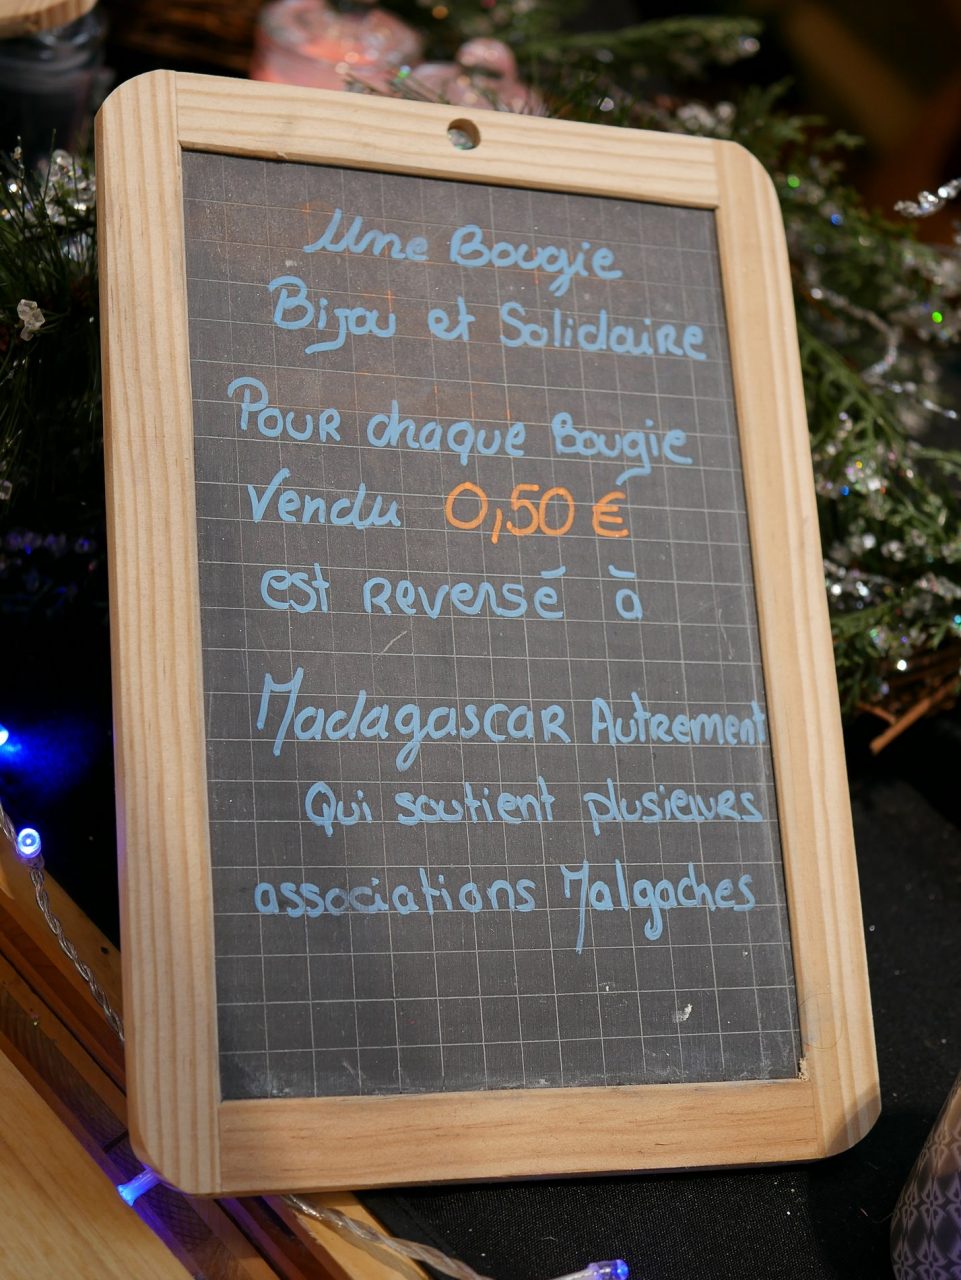 Une Bougie
Bijou et Solidaire
Pour chaque Bougie
Vendu 0,50 €
est reversé à
Madagascar Autrement
Qui soutient plusieurs
associations Malgaches